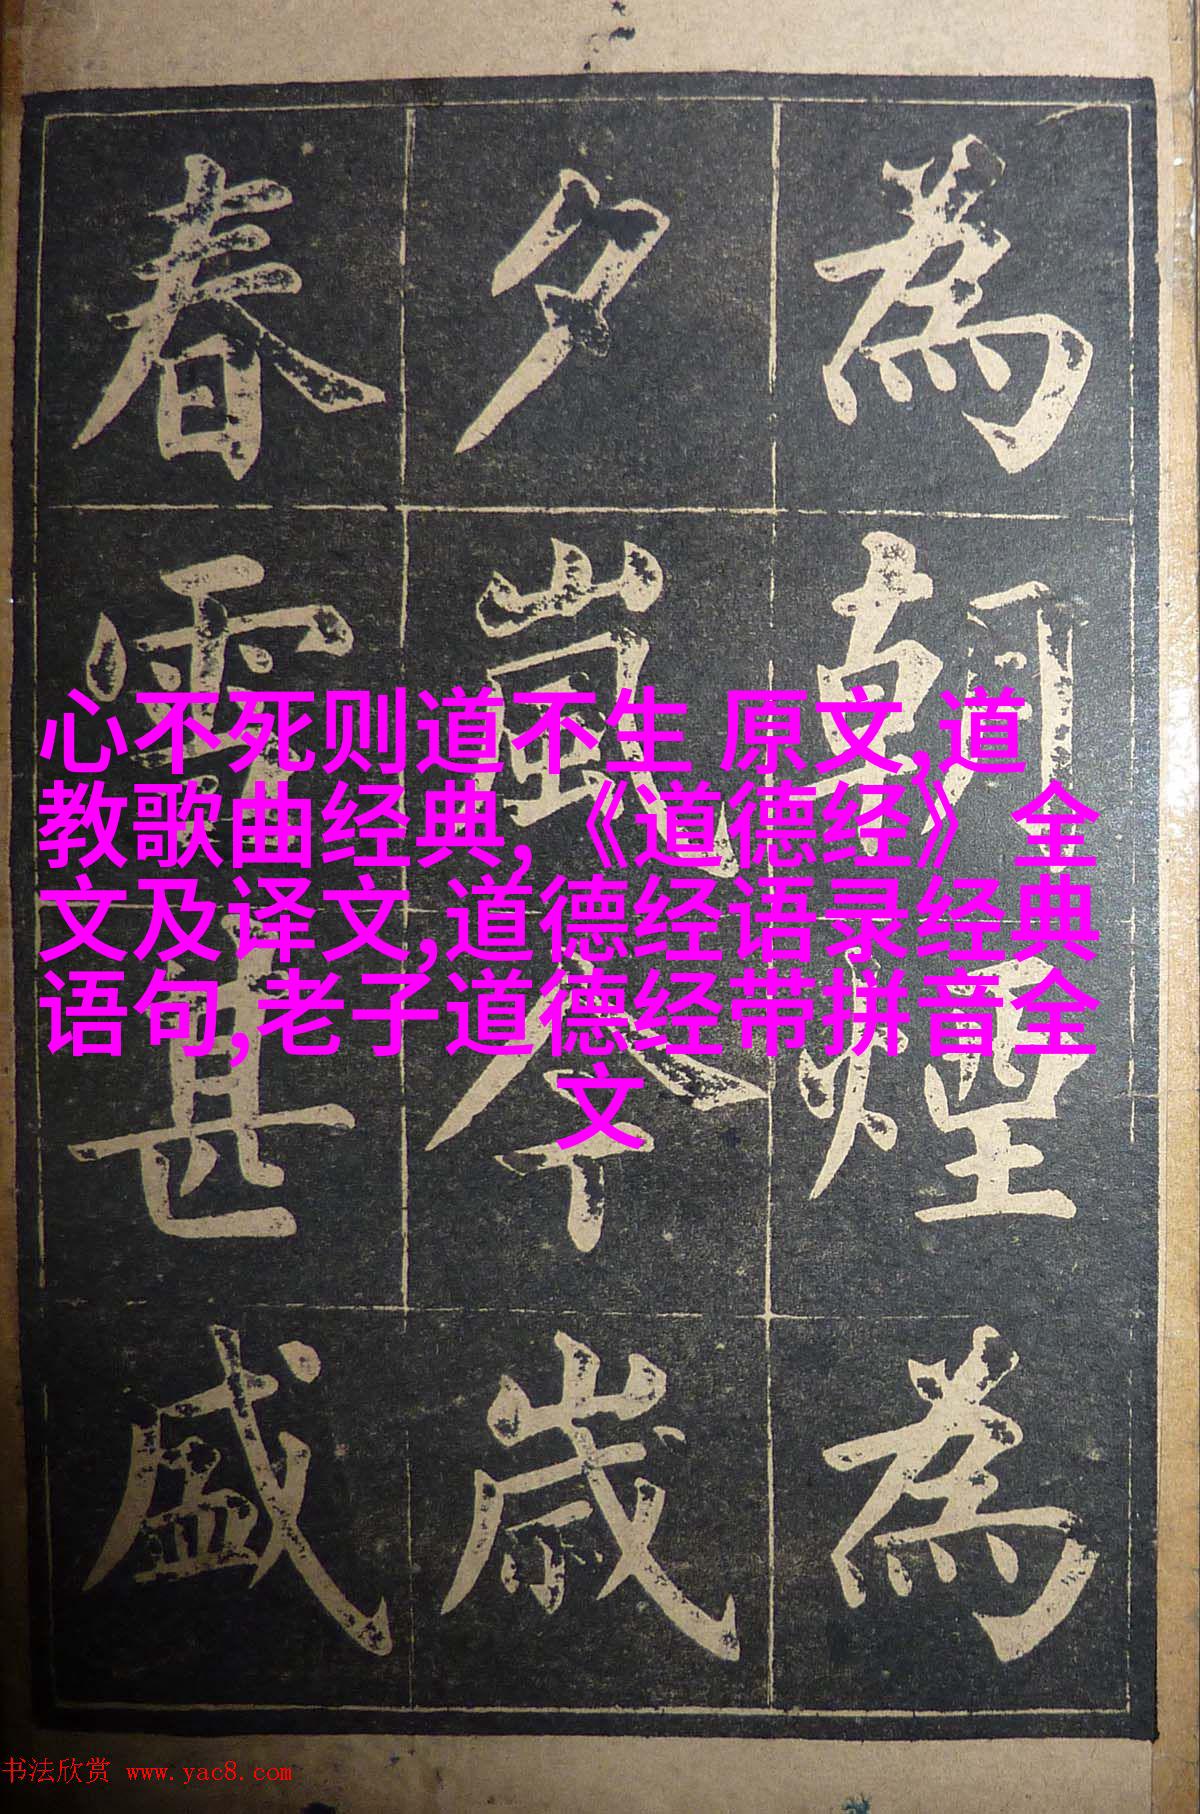 為朝煙為
夕嵐今歳
春雪甚盛
心不死则道不生 原文,道
教歌曲经典,《道德经》全
文及译文,道德经语录经典
语句,老子道德经带拼音全
文
书法欣赏 www.yac8.com